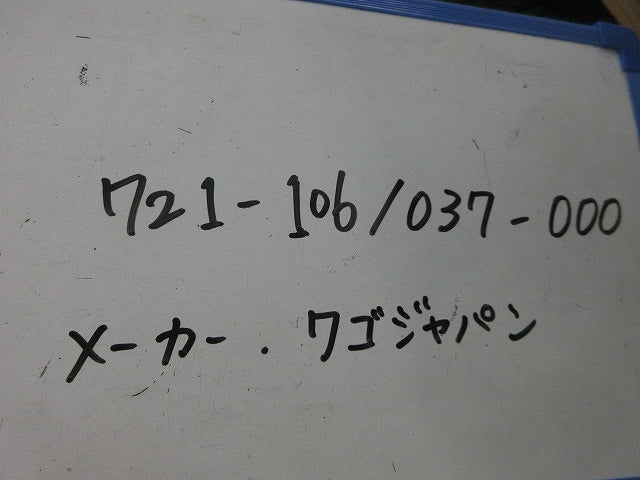 721-106/037-000
メーカー.ワゴジャパン